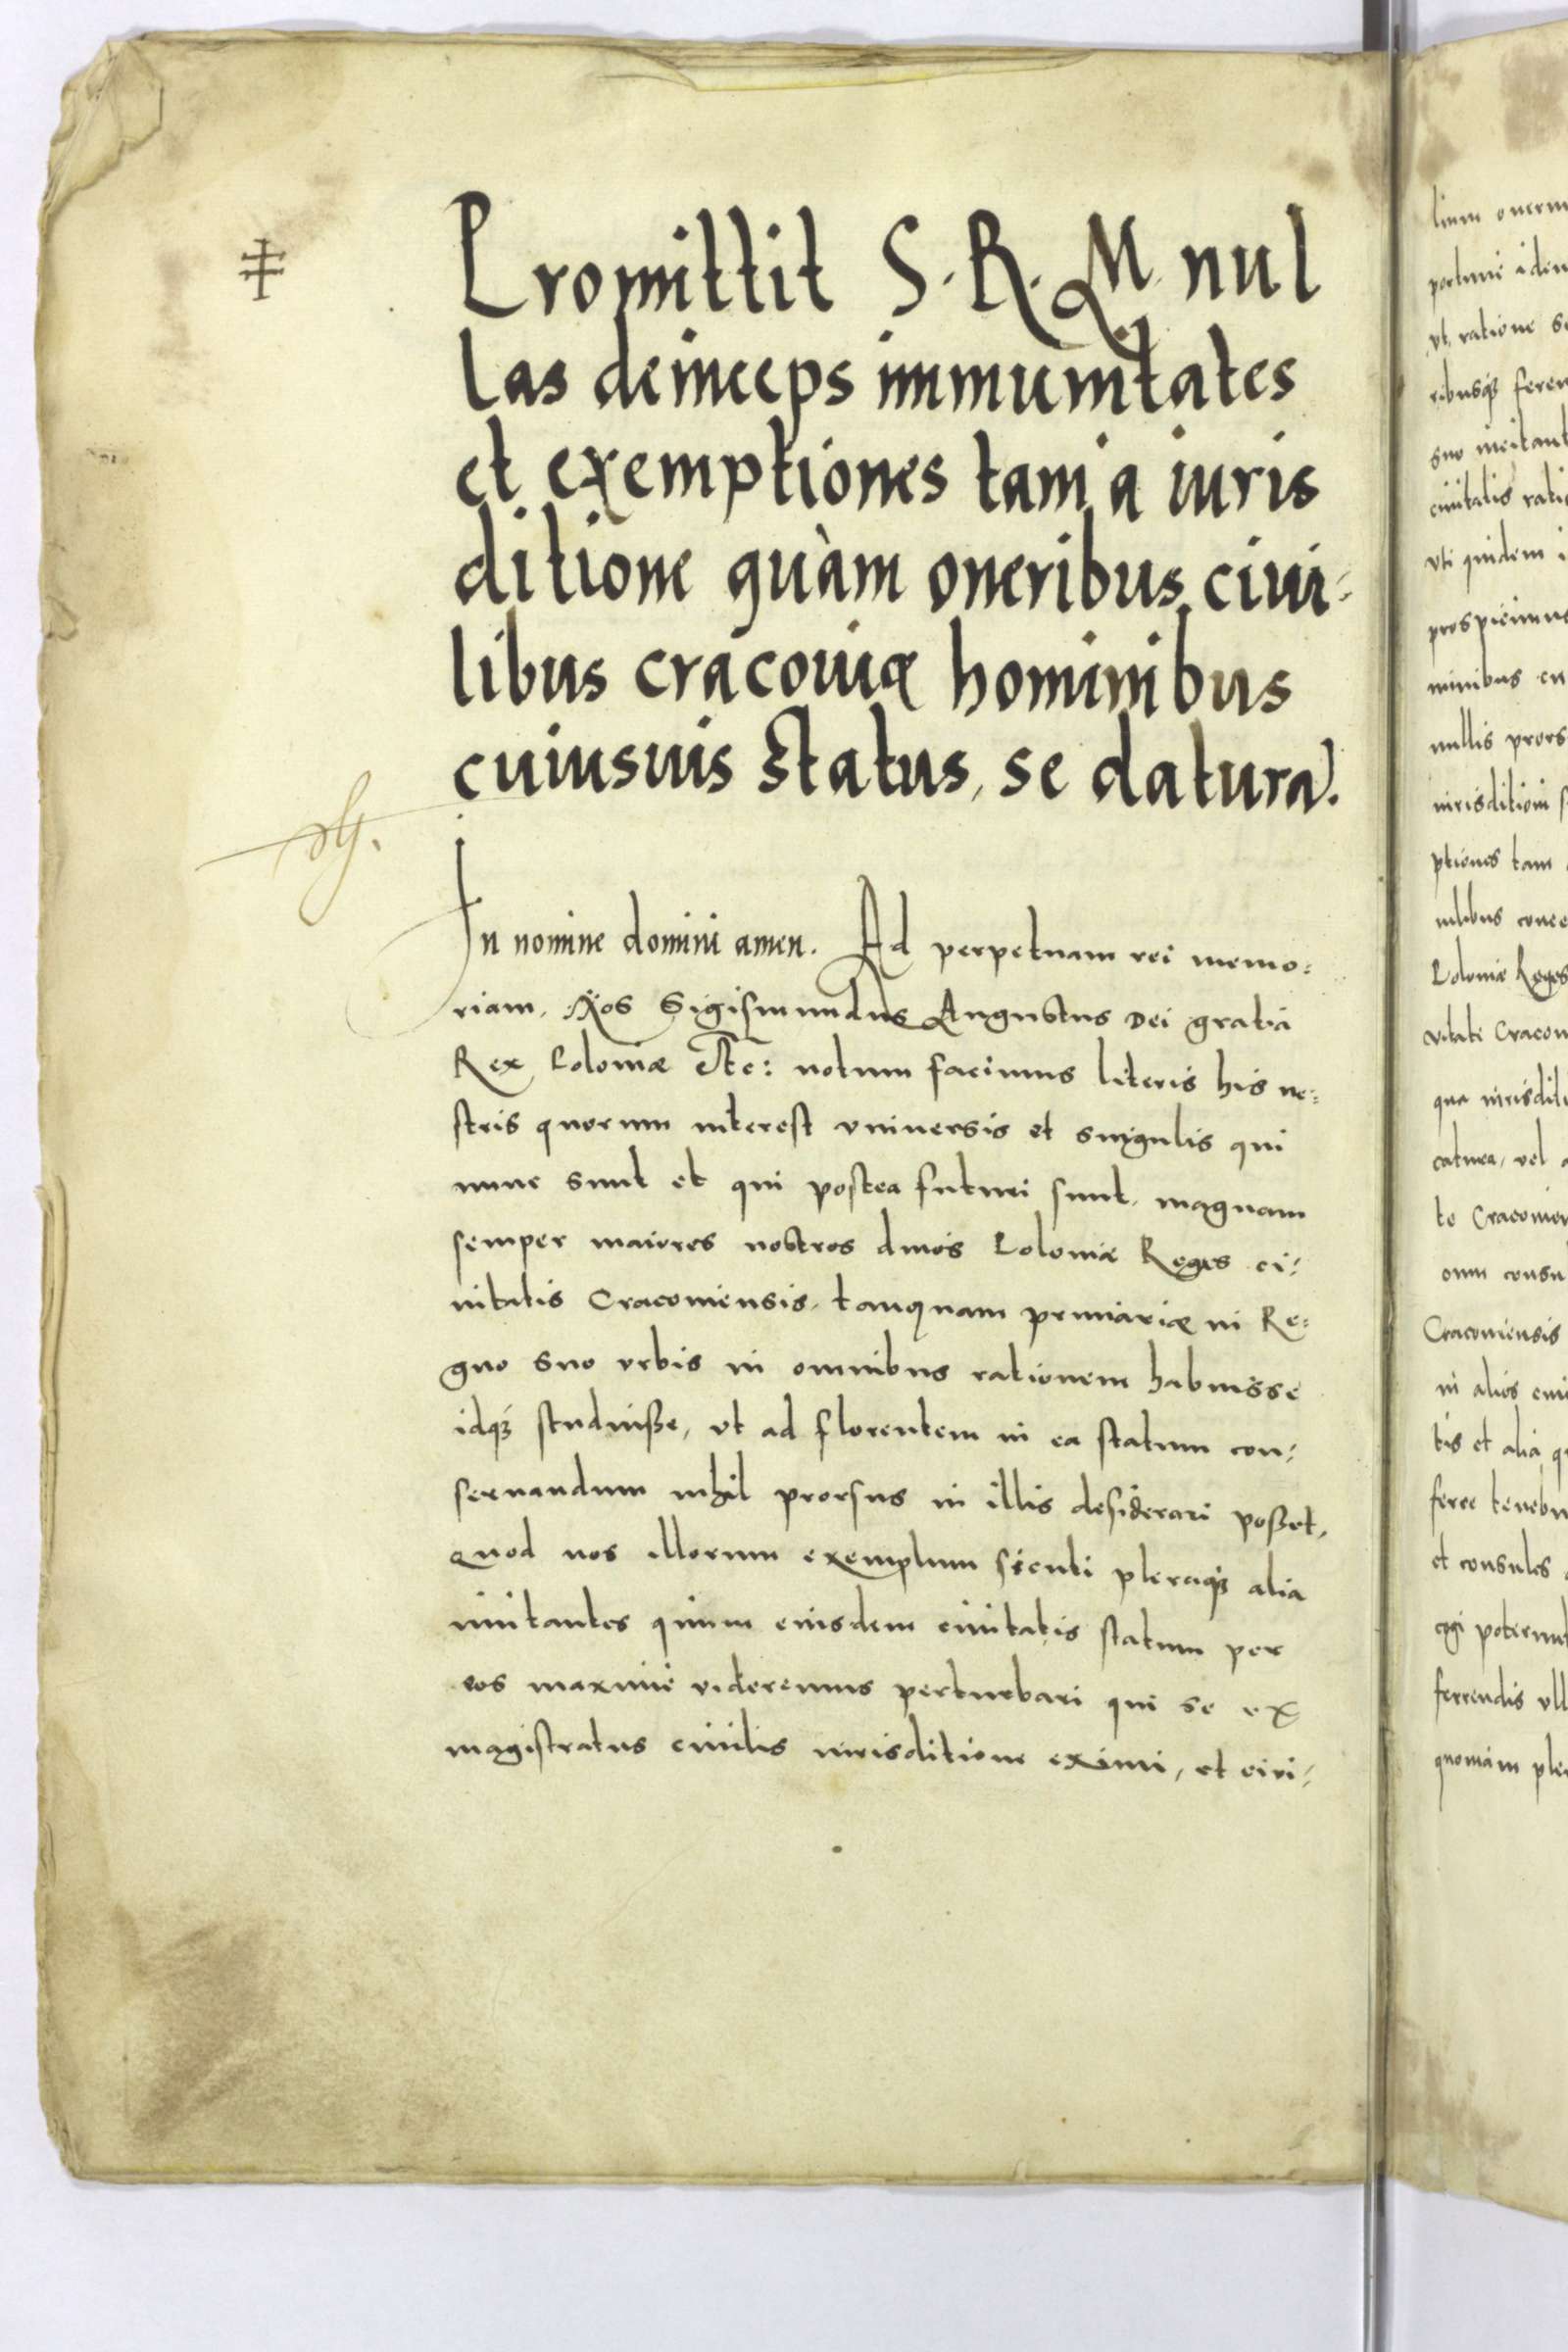 Promittit S. R. M. nul
las deinceps immunitates
et exemptiones tam a iuris
ditione quàm oneribus ciui-
libus cracouiæ hominibus
cuiusuis status, se datura.
In nomine domini amen. Ad perpetuam rei memo:
riam. Nos Sigismundus Augustus Dei gratia
Rex Poloniæ Etc: notum facimus literis his no:
stris quorum interest vniuersis et singulis qui
nunc sunt et qui postea futuri sunt. magnam
semper maiores nostros diuos Poloniæ Reges ci:
uitatis Cracouiensis, tanquam primariæ in Re:
gno suo vrbis in omnibus rationem habuisse
idqꝫ studuisse, vt ad florentem in ea statum con:
seruandum nihil prorsus in illis desiderari posset.
Quod nos illorum exemplum sicuti pleraqꝫ alia
imitantes quum eiusdem ciuitatis statum per
eos maximè videremus perturbari qui se ex
magistratus ciuilis iurisditione eximi, et ciui:
lium onerum
vt ratione
ribusqꝫ feren
suo incitant
ciuitatis ratio
vti quidem i
prospicimus
minibus cu
nullis prors
iurisditioni
ptiones tam
uilibus conce
Poloniæ Reges
uitati Cracoui
qua iurisditi
catura, vel
te Cracouien
onu consu
Cracouiensis
in alios ciui
tis et alia qu
ferre tenebu
et consules
cogi poterunt
ferrendis vll
quoniam ple